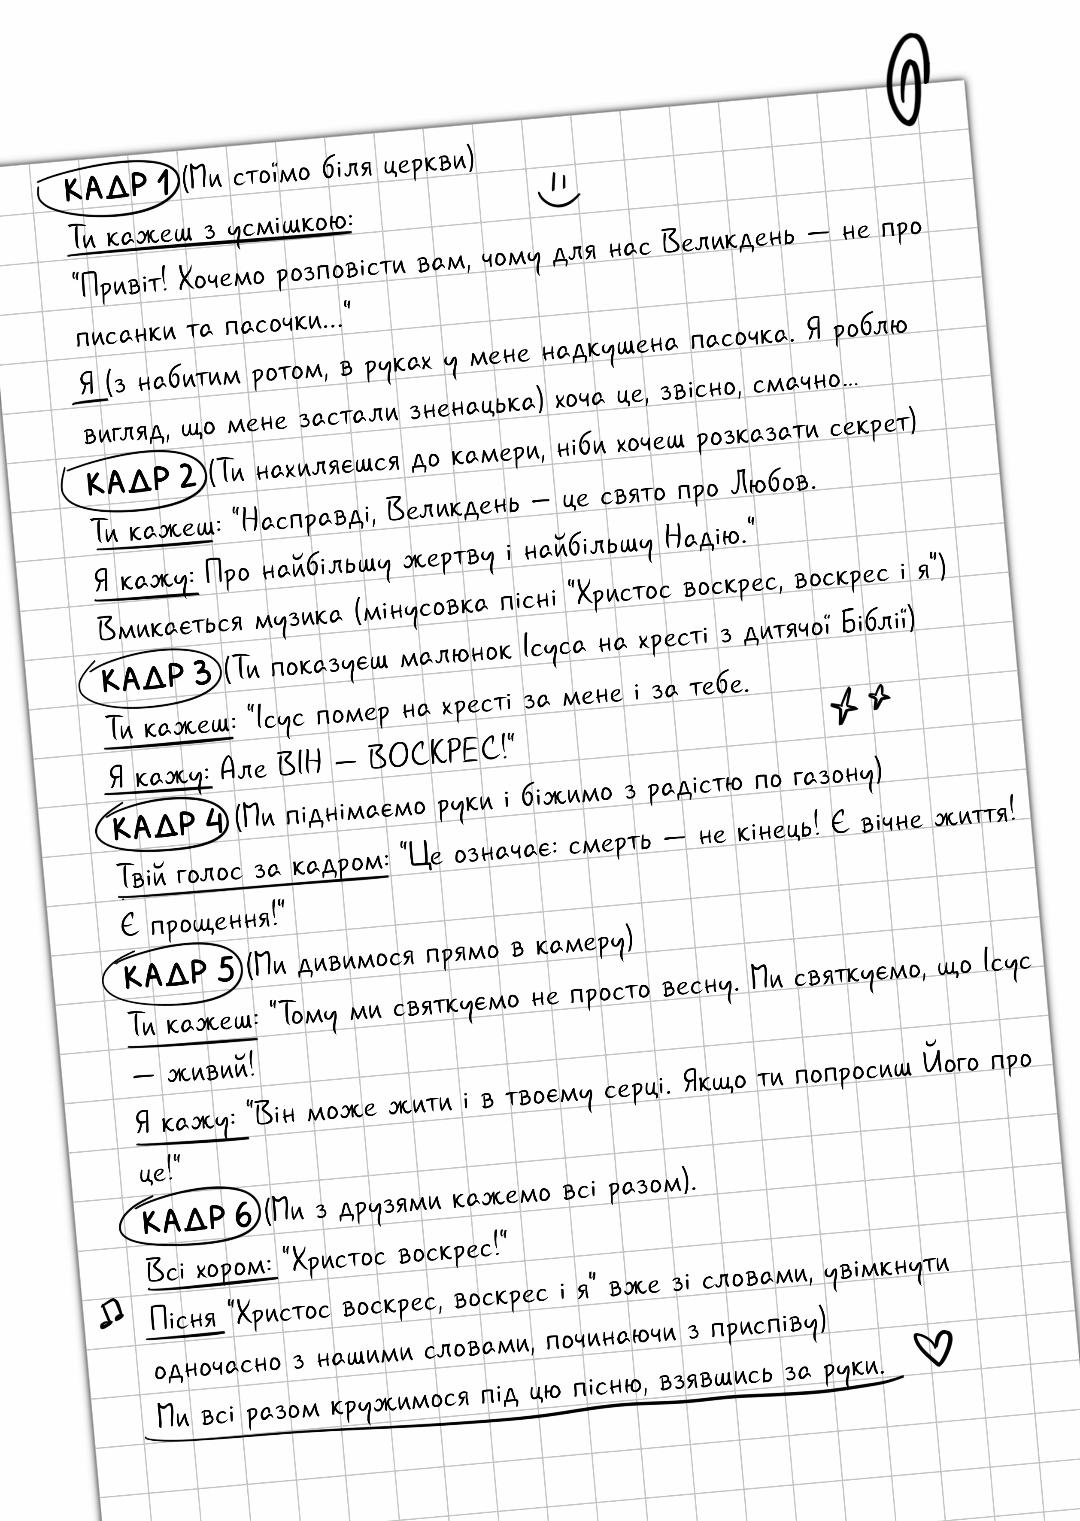 КАДР 1 (Ми стоїмо біля церкви)
Ти кажеш з усмішкою:
"Привіт! Хочемо розповісти вам, чому для нас Великдень — не про
писанки та пасочки..."
Я (з набитим ротом, в руках у мене надкушена пасочка. Я роблю
вигляд, що мене застали зненацька) хоча це, звісно, смачно...
КАДР 2 (Ти нахиляєшся до камери, ніби хочеш розказати секрет)
Ти кажеш: "Насправді, Великдень — це свято про Любов.
Я кажу: Про найбільшу жертву і найбільшу Надію."
Вмикається музика (мінусовка пісні "Христос воскрес, воскрес і я")
КАДР 3 (Ти показуєш малюнок Ісуса на хресті з дитячої Біблії)
Ти кажеш: "Ісус помер на хресті за мене і за тебе.
Я кажу: Але ВІН — ВОСКРЕС!"
КАДР 4 (Ми піднімаємо руки і біжимо з радістю по газону)
Твій голос за кадром: "Це означає: смерть — не кінець! Є вічне життя!
Є прощення!"
КАДР 5 (Ми дивимося прямо в камеру)
Ти кажеш: "Тому ми святкуємо не просто весну. Ми святкуємо, що Ісус
— живий!
Я кажу: "Він може жити і в твоєму серці. Якщо ти попросиш Його про
це!"
КАДР 6 (Ми з друзями кажемо всі разом).
Всі хором: "Христос воскрес!"
Пісня "Христос воскрес, воскрес і я" вже зі словами, увімкнути
одночасно з нашими словами, починаючи з приспіву)
Ми всі разом кружимося під цю пісню, взявшись за руки.